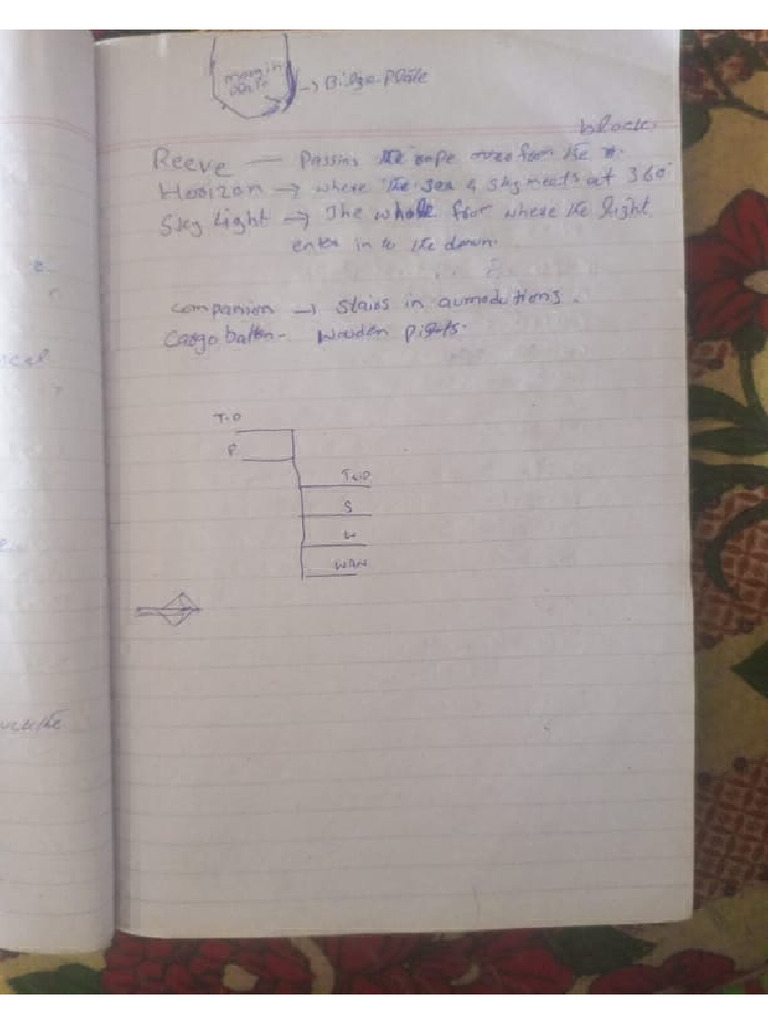 margin
plate → Bilge plate
block.
Reeve — Passing the rope over from the
Horizon → where the sea & sky meets at 360°
Sky light → The whole from where the light
enter in to the down.
companion → Stairs in aumodutions.
Cargo batten - Wooden
T.O
P
T.O
S
W
WAN